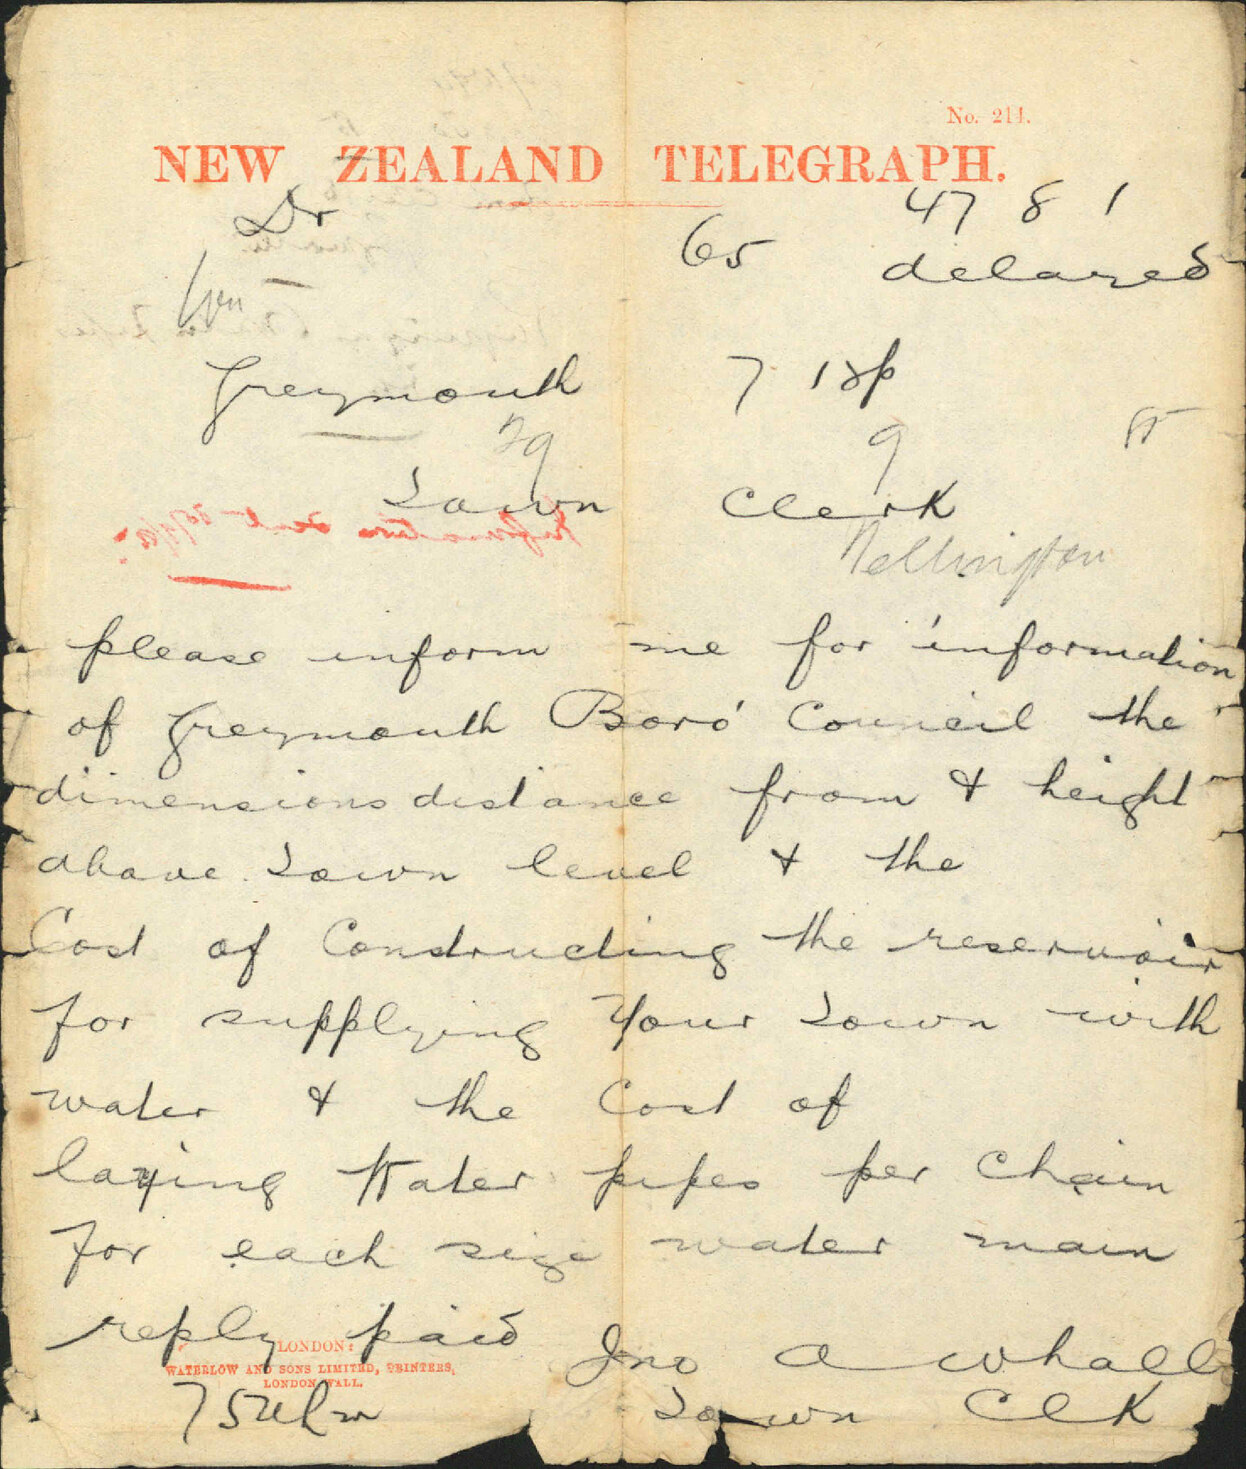 No. 214.
NEW ZEALAND TELEGRAPH.
Dr
65
47 8 1
delayed
Greymouth 7 18p
29 9
Town Clerk
Wellington
please inform me for information
of Greymouth Boro' Council the
dimensions distance from & height
above Town level & the
Cost of Constructing the reservoir
for supplying Your Town with
water & the Cost of
laying Water pipes per Chain
for each size water main
reply paid
LONDON:
WATERLOW AND SONS LIMITED, PRINTERS,
LONDON WALL.
Jno A Whall
Town Clk